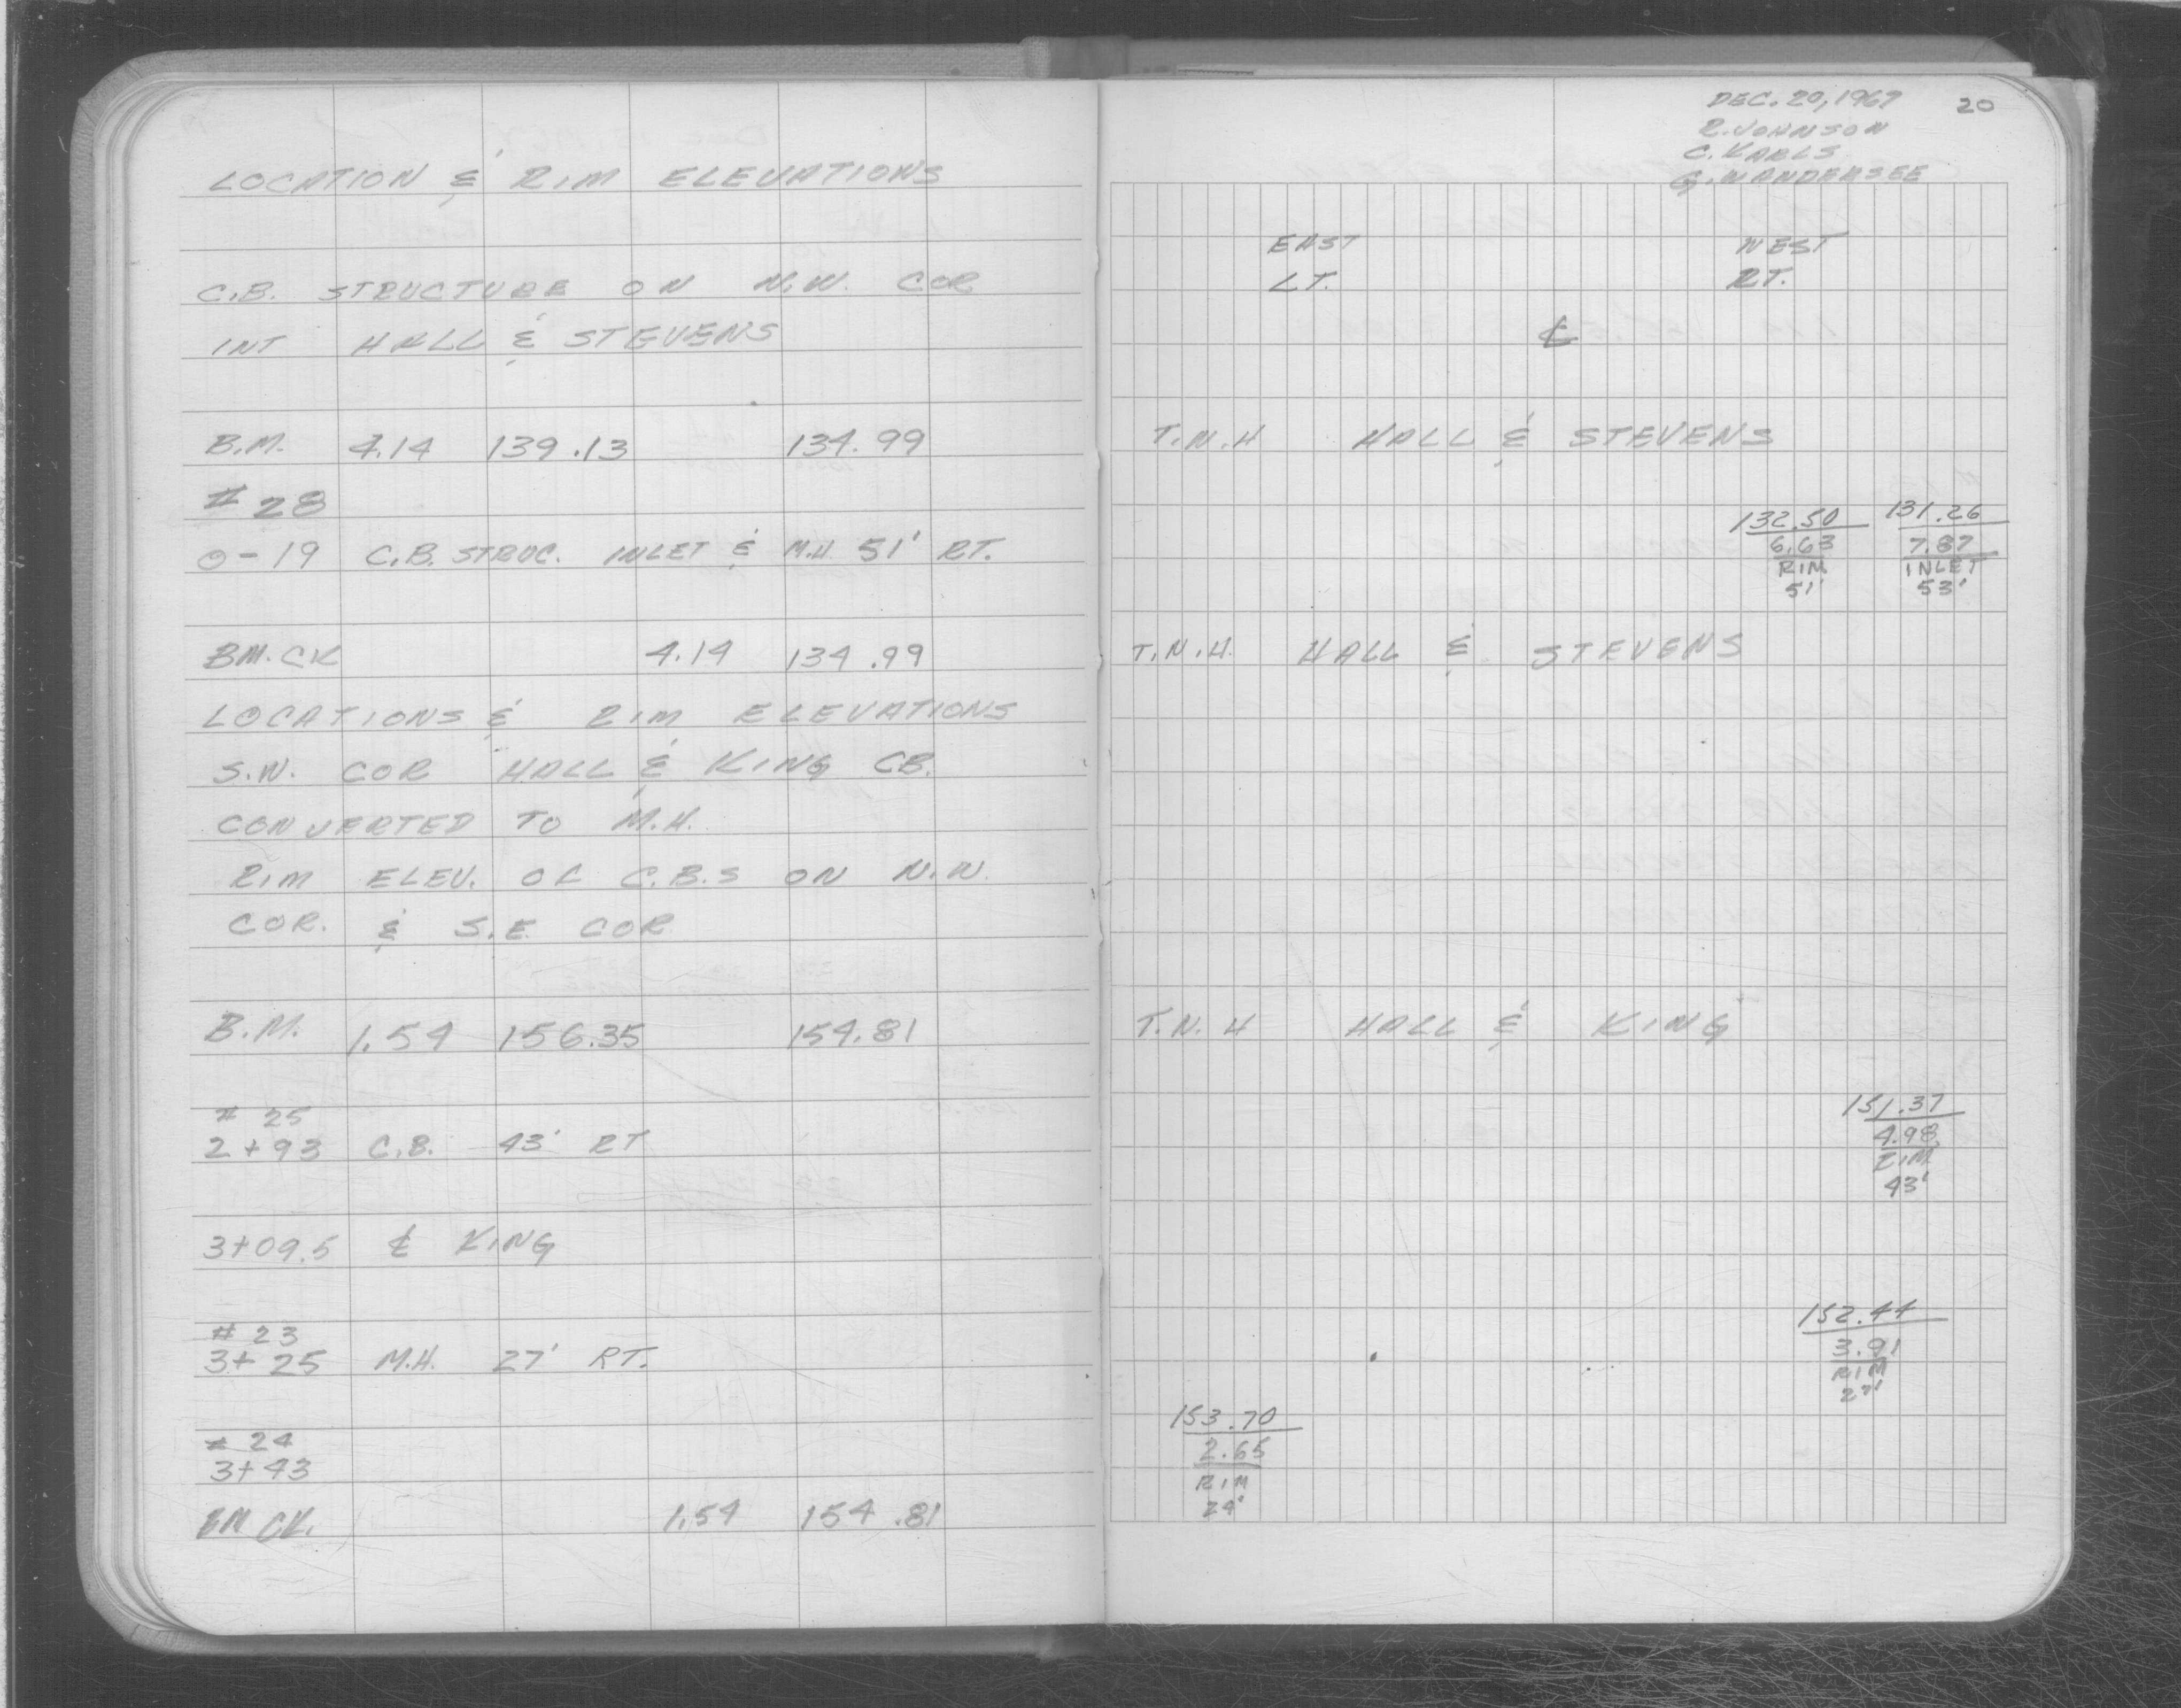 LOCATION & RIM ELEVATIONS
C.B. STRUCTURE ON N.W. COR
INT HALL & STEVENS
B.M. 4.14 139.13 134.99
# 28
0-19 C.B. STRUC. INLET & M.H 51' RT.
BM.CK 4.14 134.99
LOCATIONS & RIM ELEVATIONS
S.W. COR HALL & KING CB.
CONVERTED TO M.H.
RIM ELEV. OF C.B.S ON N.W.
COR. & S.E. COR
B.M. 1.54 156.35 154.81
# 25
2+93 C.B. 43' RT
3+09.5 ℄ KING
# 23
3+25 M.H. 27' RT.
# 24
3+43
BM CK. 1.54 154.81
DEC. 20, 1967 20
R. JOHNSON
C. KARLS
G. WANDERSEE
EAST WEST
LT. RT.
℄
T.N.H HALL & STEVENS
132.50 131.26
6.63 7.87
RIM INLET
51' 53'
T.N.H. HALL & STEVENS
T.N.H HALL & KING
151.37
4.98
RIM
43'
152.44
3.91
RIM
27'
153.70
2.65
RIM
24'